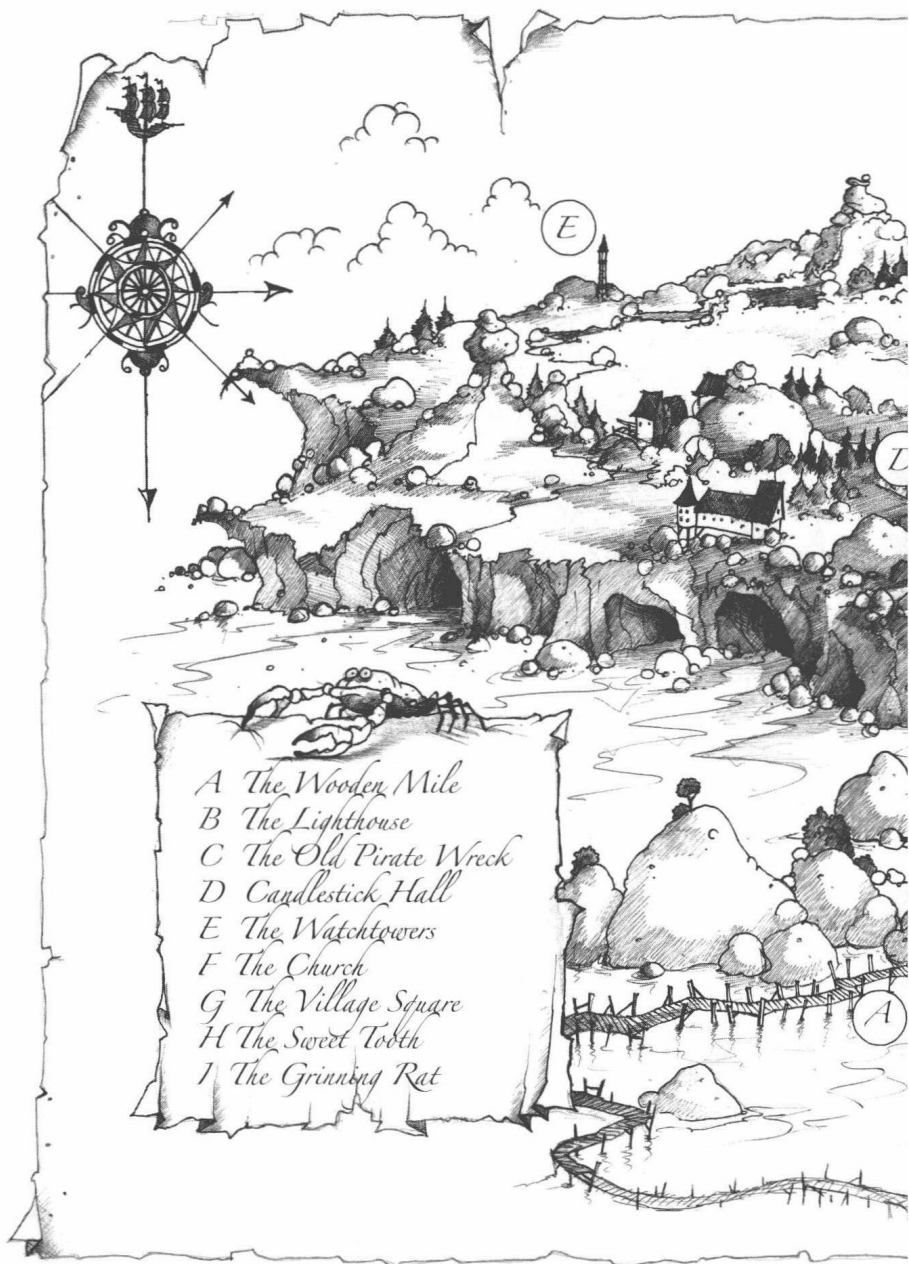 E
D
A The Wooden Mile
B The Lighthouse
C The Old Pirate Wreck
D Candlestick Hall
E The Watchtowers
F The Church
G The Village Square
H The Sweet Tooth
I The Grinning Rat
A